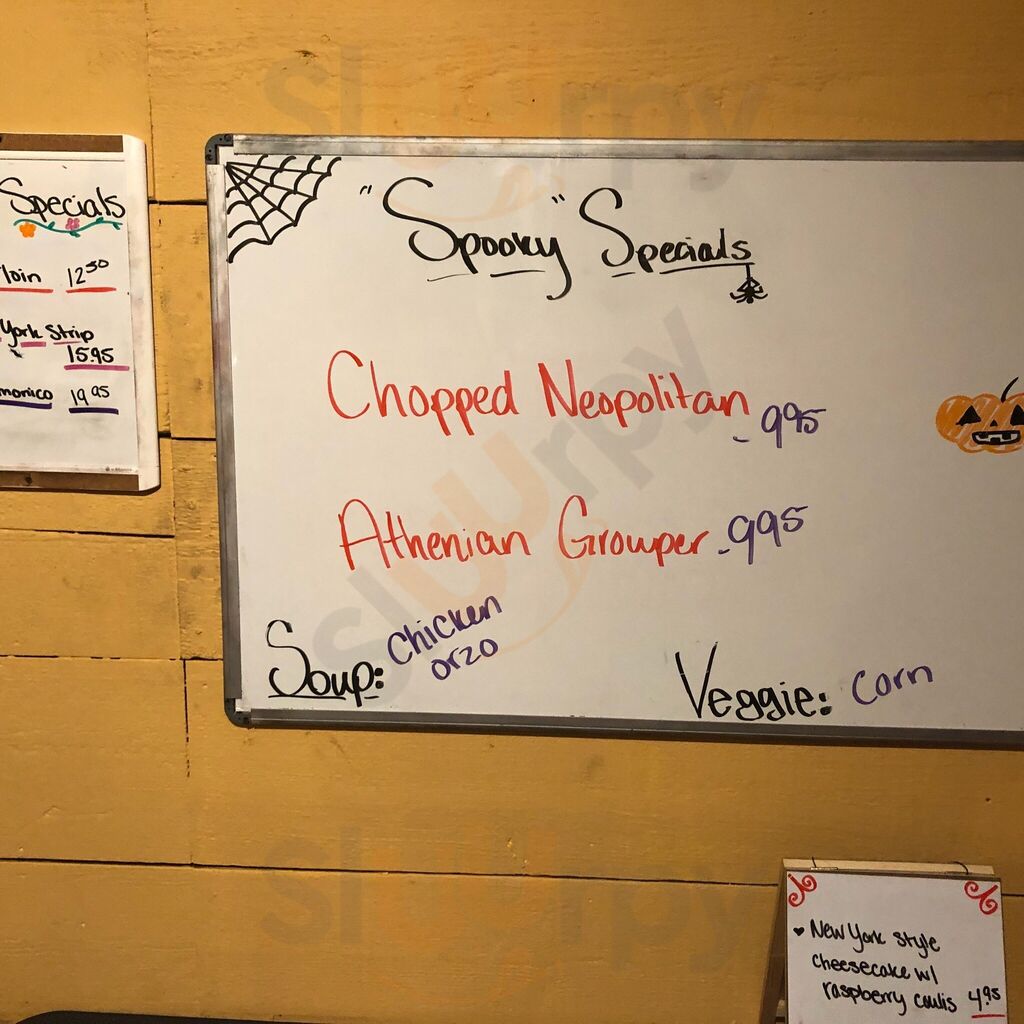 Specials
loin 12 50
York Strip
15.95
monico 19 95
"Spooky" Specials
Chopped Neopolitan
- 995
Athenian Grouper - 995
Soup: Chicken
orzo
Veggie: Corn
♥ New York style
cheesecake w/
raspberry coulis 4.95
sluurpy
sluurpy
sluurpy